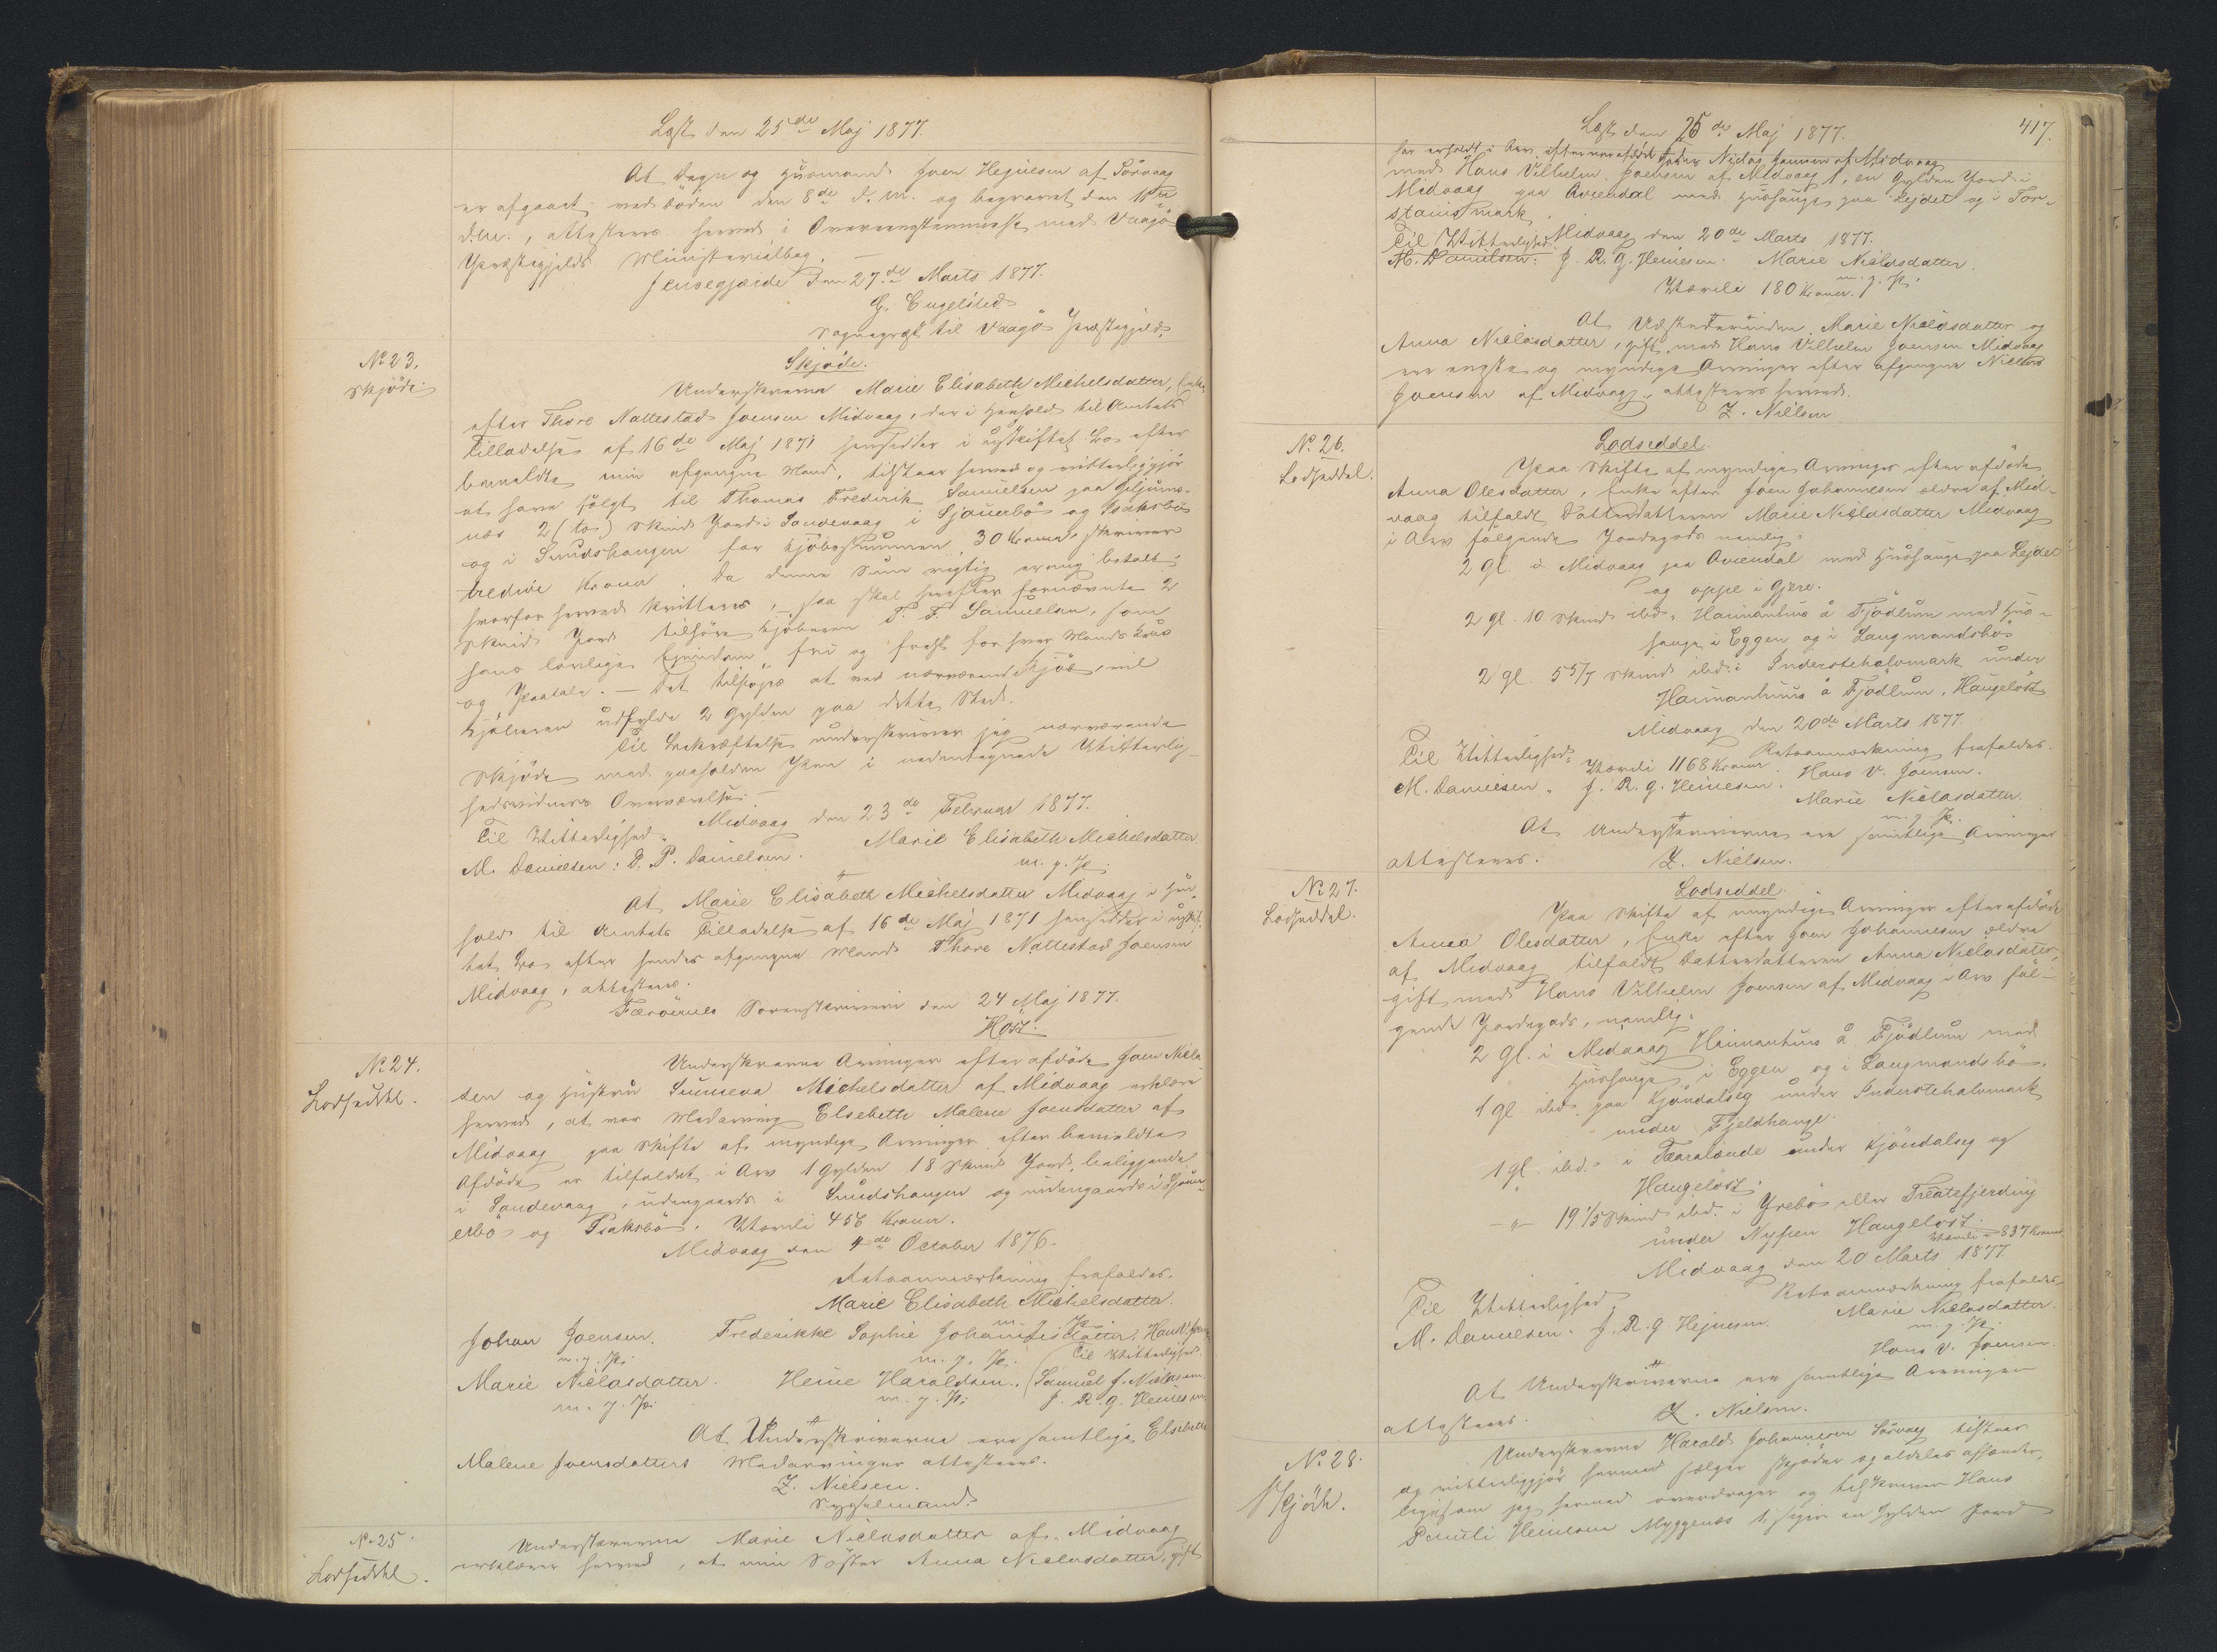 Læst den 25de Maj 1877.
At Degn og Husmand Joen Hejnesen af Sörvaag
er afgaaet ved Döden den 8de d. M. og begravet den
d.M., attesteres herved i Overeensstemmelse med Vaagö
Præstegjelds Ministerialbog.
Jensegjærde den 27de Marts 1877.
E. Engelsted
Sognepræst til Vaagö Præstegjeld.
No 23.
Skjöde.
Skjöde.
Underskrevne Marie Elisabeth Michelsdatter, Enke
efter Thore Nattestad Joensen Midvaag, der i Henhold til Amtets
Tilladelse af 16de Maj 1871 hensidder i uskiftet Bo efter
bemeldte min afgangne Mand, tilstaar herved og vitterliggjör
at have solgt til Thomas Frederik Samuelsen paa Giljums-
næs 2 (to) Skind Jord i Sandevaag i Sjauerbö og Isaksbö
og i Smidshaugen for Kjöbesummen 30 Kroner, skriver
tredive Kroner. Da denne Sum rigtig er mig betalt,
hvorfor herved kvitteres, saa skal herefter fornævnte 2
Skind Jord tilhöre Kjöberen T. F. Samuelsen, som
hans lovlige Ejendom, fri og frelst for hver Mands Krav
og Paatale. — Det tilföjes at ved nærværende Kjöb, vil
Kjöberen udfylde 2 Gylden paa dette Sted.
Til Bekræftelse underskriver jeg nærværende
Skjöde med paaholden Pen i undertegnede Vitterlig-
hedsvidners Overværelse.
Midvaag den 23de Februar 1877.
Til Vitterlighed
Marie Elisabeth Michelsdatter
M. Danielsen: D. P. Danielsen.
m. p. P.
At Marie Elisabeth Michelsdatter Midvaag i Hen-
hold til Amtets Tilladelse af 16de Maj 1871 hensidder i uskif-
tet Bo efter hendes afgangne Mand Thore Nattestad Joensen
Midvaag, attesteres.
Færöernes Sorenskriveri den 24 Maj 1877.
Höst.
No 24.
Lodseddel.
Underskrevne Arvinger efter afdöde Joen Niela-
sen og Hustru Sunneva Michelsdatter af Midvaag erklære
herved, at vor Medarving Elsebeth Malene Joensdatter af
Midvaag paa Skifte af myndige Arvinger efter bemeldte
Afdöde er tilfaldet i Arv 1 Gylden 18 Skind Jord, beliggende
i Sandevaag, udengaards i Smidshaugen og indengaards i Sjau-
erbö og Isaksbö. Værdi 456 Kroner.
Midvaag den 4de October 1876.
Retsanmærkning frafaldes.
Marie Elisabeth Michelsdatter.
m. p. P.
Johan Joensen. Frederikke Sophie Johannesdatter. Hans V. Joensen
m. p. P. m. p. P. Til Vitterlighed.
Marie Nielasdatter. Heine Haraldsen. Samuel J. Nielasen
m. p. P. m. p. P. J. R. G. Heinesen.
At Underskriverne ere samtlige Elsebeth
Malene Joensdatters Medarvinger attesteres.
Z. Nielsen.
Sysselmand.
No 25.
Lodseddel.
Underskrevne Marie Nielasdatter af Midvaag
erklærer herved, at min Söster Anna Nielasdatter, gift
Læst den 25de Maj 1877.
417.
har erholdt i Arv efter vor afdöde Fader Nielas Joensen af Midvaag
med Hans Vilhelm Joensen af Midvaag 1, en Gylden Jord i
Midvaag paa Aviendal med Huushauge paa Lejdet og i Tor-
stainsmark.
Midvaag den 20de Marts 1877.
Til Vitterlighed.
M. Danielsen. J. R. G. Heinesen. Marie Nielasdatter.
m. p. P.
Værdi 180 Kroner.
At Udstederinden Marie Nielasdatter og
Anna Nielasdatter, gift med Hans Vilhelm Joensen Midvaag
ere eneste og myndige Arvinger efter afgangne Nielas
Joensen af Midvaag, attesteres herved.
Z. Nielsen
No 26.
Lodseddel.
Lodseddel.
Paa Skifte af myndige Arvinger efter afdöde
Anna Olesdatter, Enke efter Joen Johannesen ældre af Mid-
vaag tilfaldt Datterdatteren Marie Nielasdatter Midvaag
i Arv fölgende Jordegods nemlig:
2 Gl. i Midvaag paa Aviendal med Huushauge paa Lejdet
og oppe i Gjere.
2 gl. 10 Skind ibd. Hamanhus å Fjödlum med Huus-
hauge i Eggen og i Laugmandsbö
2 gl. 5 5/7 Skind ibd. i Inderstehalvmark under
Hamanhuus å Fjödlum, Haugelöst
Midvaag den 20de Marts 1877.
Til Vitterlighed.
Retsanmærkning frafaldes.
Værdi 1168 Kroner.
Hans V. Joensen.
M. Danielsen. J. R. G. Heinesen.
Marie Nielasdatter.
m. p. P.
At Underskriverne ere samtlige Arvinger
attesteres.
Z. Nielsen.
No 27.
Lodseddel.
Lodseddel.
Paa Skifte af myndige Arvinger efter afdöde
Anna Olesdatter, Enke efter Joen Johannesen ældre
af Midvaag tilfaldt Datterdatteren Anna Nielasdatter,
gift med Hans Vilhelm Joensen af Midvaag i Arv föl-
gende Jordegods, nemlig:
2 Gl. i Midvaag Hamanhuus å Fjödlum med
Huushauge i Eggen og i Laugmandsbö.
1 gl. ibd. paa Kjöndalseg under Inderstehalvmark
under Fjeldhauge.
1 gl. ibd. i Tearalande under Kjöndalseg og
Haugelöst.
— " — 19 1/5 Skind ibd. i Yrebö eller Treatefjerding
under Nypen Haugelöst.
Værdi = 837 Kroner
Midvaag den 20 Marts 1877.
Retsanmærkning frafaldes.
Til Vitterlighed
Marie Nielasdatter.
M. Danielsen. J. R. G. Hejnesen.
m. p. P.
Hans V. Joensen.
At Underskriverne ere samtlige Arvinger
attesteres.
Z. Nielsen.
No 28.
Skjöde.
Underskrevne Harald Johannesen Sörvaag tilstaar
og vitterliggjör hermed sælger skjöder og aldeles afhænder,
ligesom jeg hermed overdrager og tilskriver Hans
Pauli Heinesen Myggenæs 1, siger en Gylden Jord